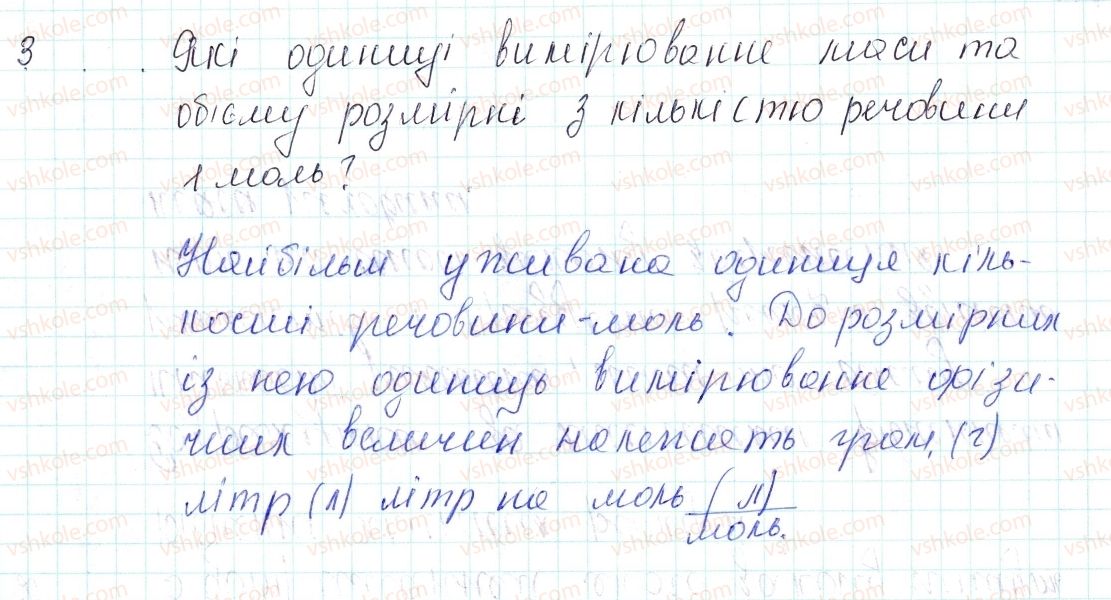 3 . . . Які одиниці вимірювання маси та
обʼєму розмірні з кількістю речовини
1 моль?
Найбільш уживана одиниця кіль-
кості речовини-моль. До розмірних
із нею одиниць вимірювання фізи-
чних величин належать грам, (г)
літр (л) літр на моль (л)
моль.